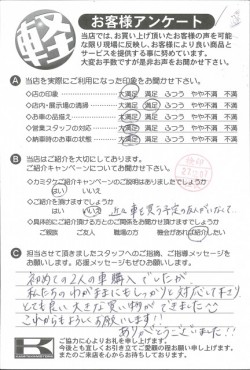 軽
お客様アンケート
当店では、お買い上げ頂いたお客様の声を可能
な限り現場に反映し、お客様により良い商品と
サービスを提供する事に努めています。
大変お手数ですが是非お声をお聞かせ下さい。
A 当店を実際にご利用になった印象をお聞かせ下さい。
◇店の印象 大満足 満足 ふつう やや不満 不満
◇店内・展示場の清掃 大満足 満足 ふつう やや不満 不満
◇お車の品揃え 大満足 満足 ふつう やや不満 不満
◇営業スタッフの対応 大満足 満足 ふつう やや不満 不満
◇納車時のお車の状態 大満足 満足 ふつう やや不満 不満
B 当店はご紹介を大切にしております。
ご紹介キャンペーンについてお聞かせ下さい。
◇カミタケご紹介キャンペーンのご説明はありましたでしょうか
はい いいえ
◇ご紹介を頂けますでしょうか
はい いいえ 近々車を買う予定の友人がいなくて…
◇具体的にご紹介頂ける方とのご関係をお聞かせ頂けますでしょうか
ご親族 ご友人 職場の方 機会があれば紹介したい
C 担当させて頂きましたスタッフへのご指摘、ご指導メッセージを
お願いします。応援メッセージもぜひお願いします。
初めての2人の車購入でしたが、
私たちのわがままにもしっかりと対応して下さり
とても良い大きな買い物ができました
これからもどうぞよろしくお願いします!!
ありがとうございました!!
K
ご協力に心よりお礼を申し上げます。
今後とも宜しくお引き立てご愛顧の程お願い申し上げます。
またのご来店を心からお待ちしております。